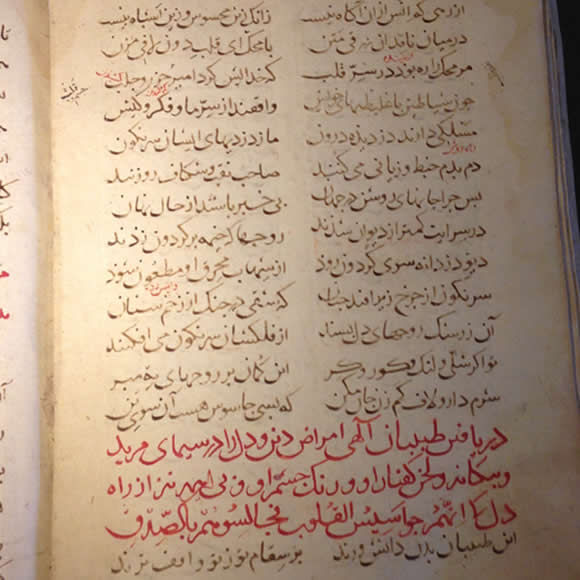 از رهی که انس از آن آگاه نیست زانک زین محسوس و زین اشباه نیست
در میان ناقدان زرقی متن با محک ای قلب دون لافی مزن
مر محک را ره بود در سر قلب که خدایش کرد امیر
چون شیاطین با غلیظیهای خویش واقفند از سر ما و فکر و کیش
مسلکی دارند دزدیده درون ما ز دزدیهای ایشان سرنگون
دم بدم خبط و زیانی می کنند صاحب نقب و شکاف روزنند
پس چرا جانهای روشن در جهان بی خبر باشند از حال نهان
در سرایت کمتر از دیوان شدند روحها که خیمه بر گردون زدند
دیو دزدانه سوی گردون رود از شهاب محرق او مطعون شود
سرنگون از چرخ زیر افتد چنان که شقی در جنگ از زخم سنان
آن ز رشک روحهای دل پسند از فلکشان سرنگون می افکنند
تو اگر شلی و لنگ و کور و کر این گمان بر روحهای مه مبر
شرم دار و لاف کم زن جان مکن که بسی جاسوس هست آن سوی تن
دریافتن طبیبان الهی امراض دین و دل را در سیمای مرید
و بیگانه و لحن گفتار او و رنگ چشم او و بی این همه نیز از راه
دل که انهم جواسیس القلوب فجالسوهم بالصدق
این طبیبان بدن دانش ورند بر سقام تو ز تو واقف ترند